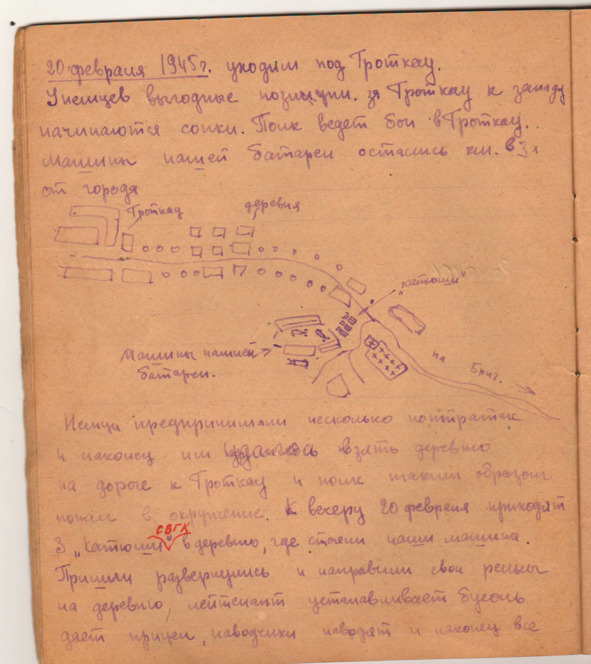 20 февраля 1945г. уходим под Троткау.
У немцев выгодные позиции. за Троткау к западу
начинаются сопки. Полк ведет бои в Троткау.
Машины нашей батареи остались км. в 3х
от города
Троткау
деревня
"катюши"
Машины нашей
батареи.
на
Бриг.
Немцы предпринимали несколько контратак
и наконец им удалось взять деревню
на дороге к Троткау и полк таким образом
попал в окружение. К вечеру 20 февраля приходят
СВГК
3 "Катюши" в деревню, где стояли наши машины.
Пришли развернулись и направили свои рельсы
на деревню, лейтенант устанавливает бусоль
дает прицел, наводчики наводят и наконец всё